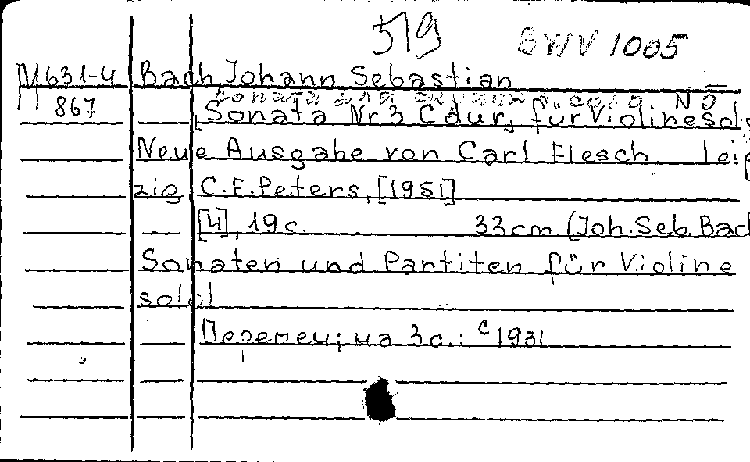 519 BWV 1005
M631-4 Bach Johann Sebastian
M 867 [Sonata Nr 3 C dur, für Violinesolo
Neue Ausgabe von Carl Flesch Leip
zig C.F.Peters, [1951]
[4], 19 c. 33cm (Joh. Seb. Bach
Sonaten und Partiten für Violine
solo)
1931